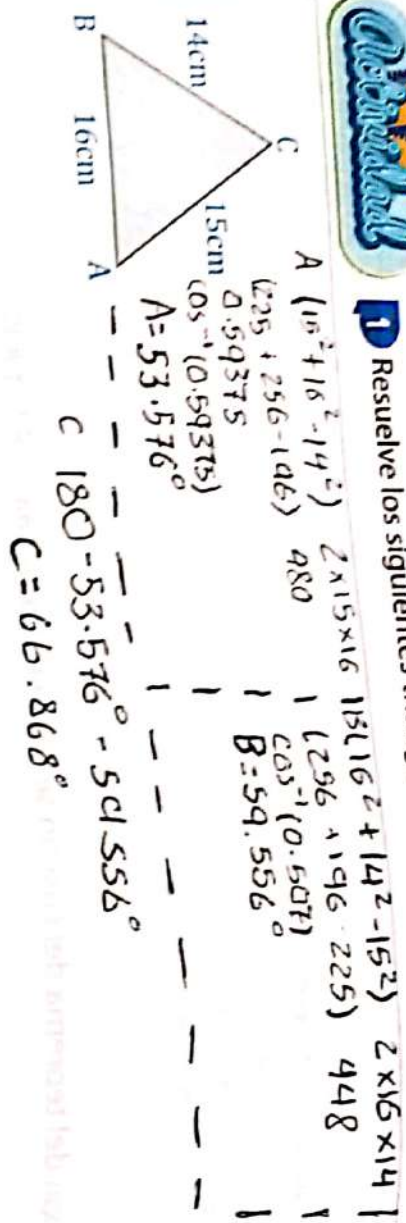 Actividad
1 Resuelve los siguientes
C
14cm
15cm
B
16cm
A
A (15²+16²-14²) 2x15x16
(225 + 256-196) 480
0.59375
cos⁻¹(0.59375)
A=53.576°
B(16² + 14² -15²) 2x16x14
(256 +196-225) 448
cos⁻¹(0.507)
B=59.556°
C 180-53.576°-59.556°
C=66.868°